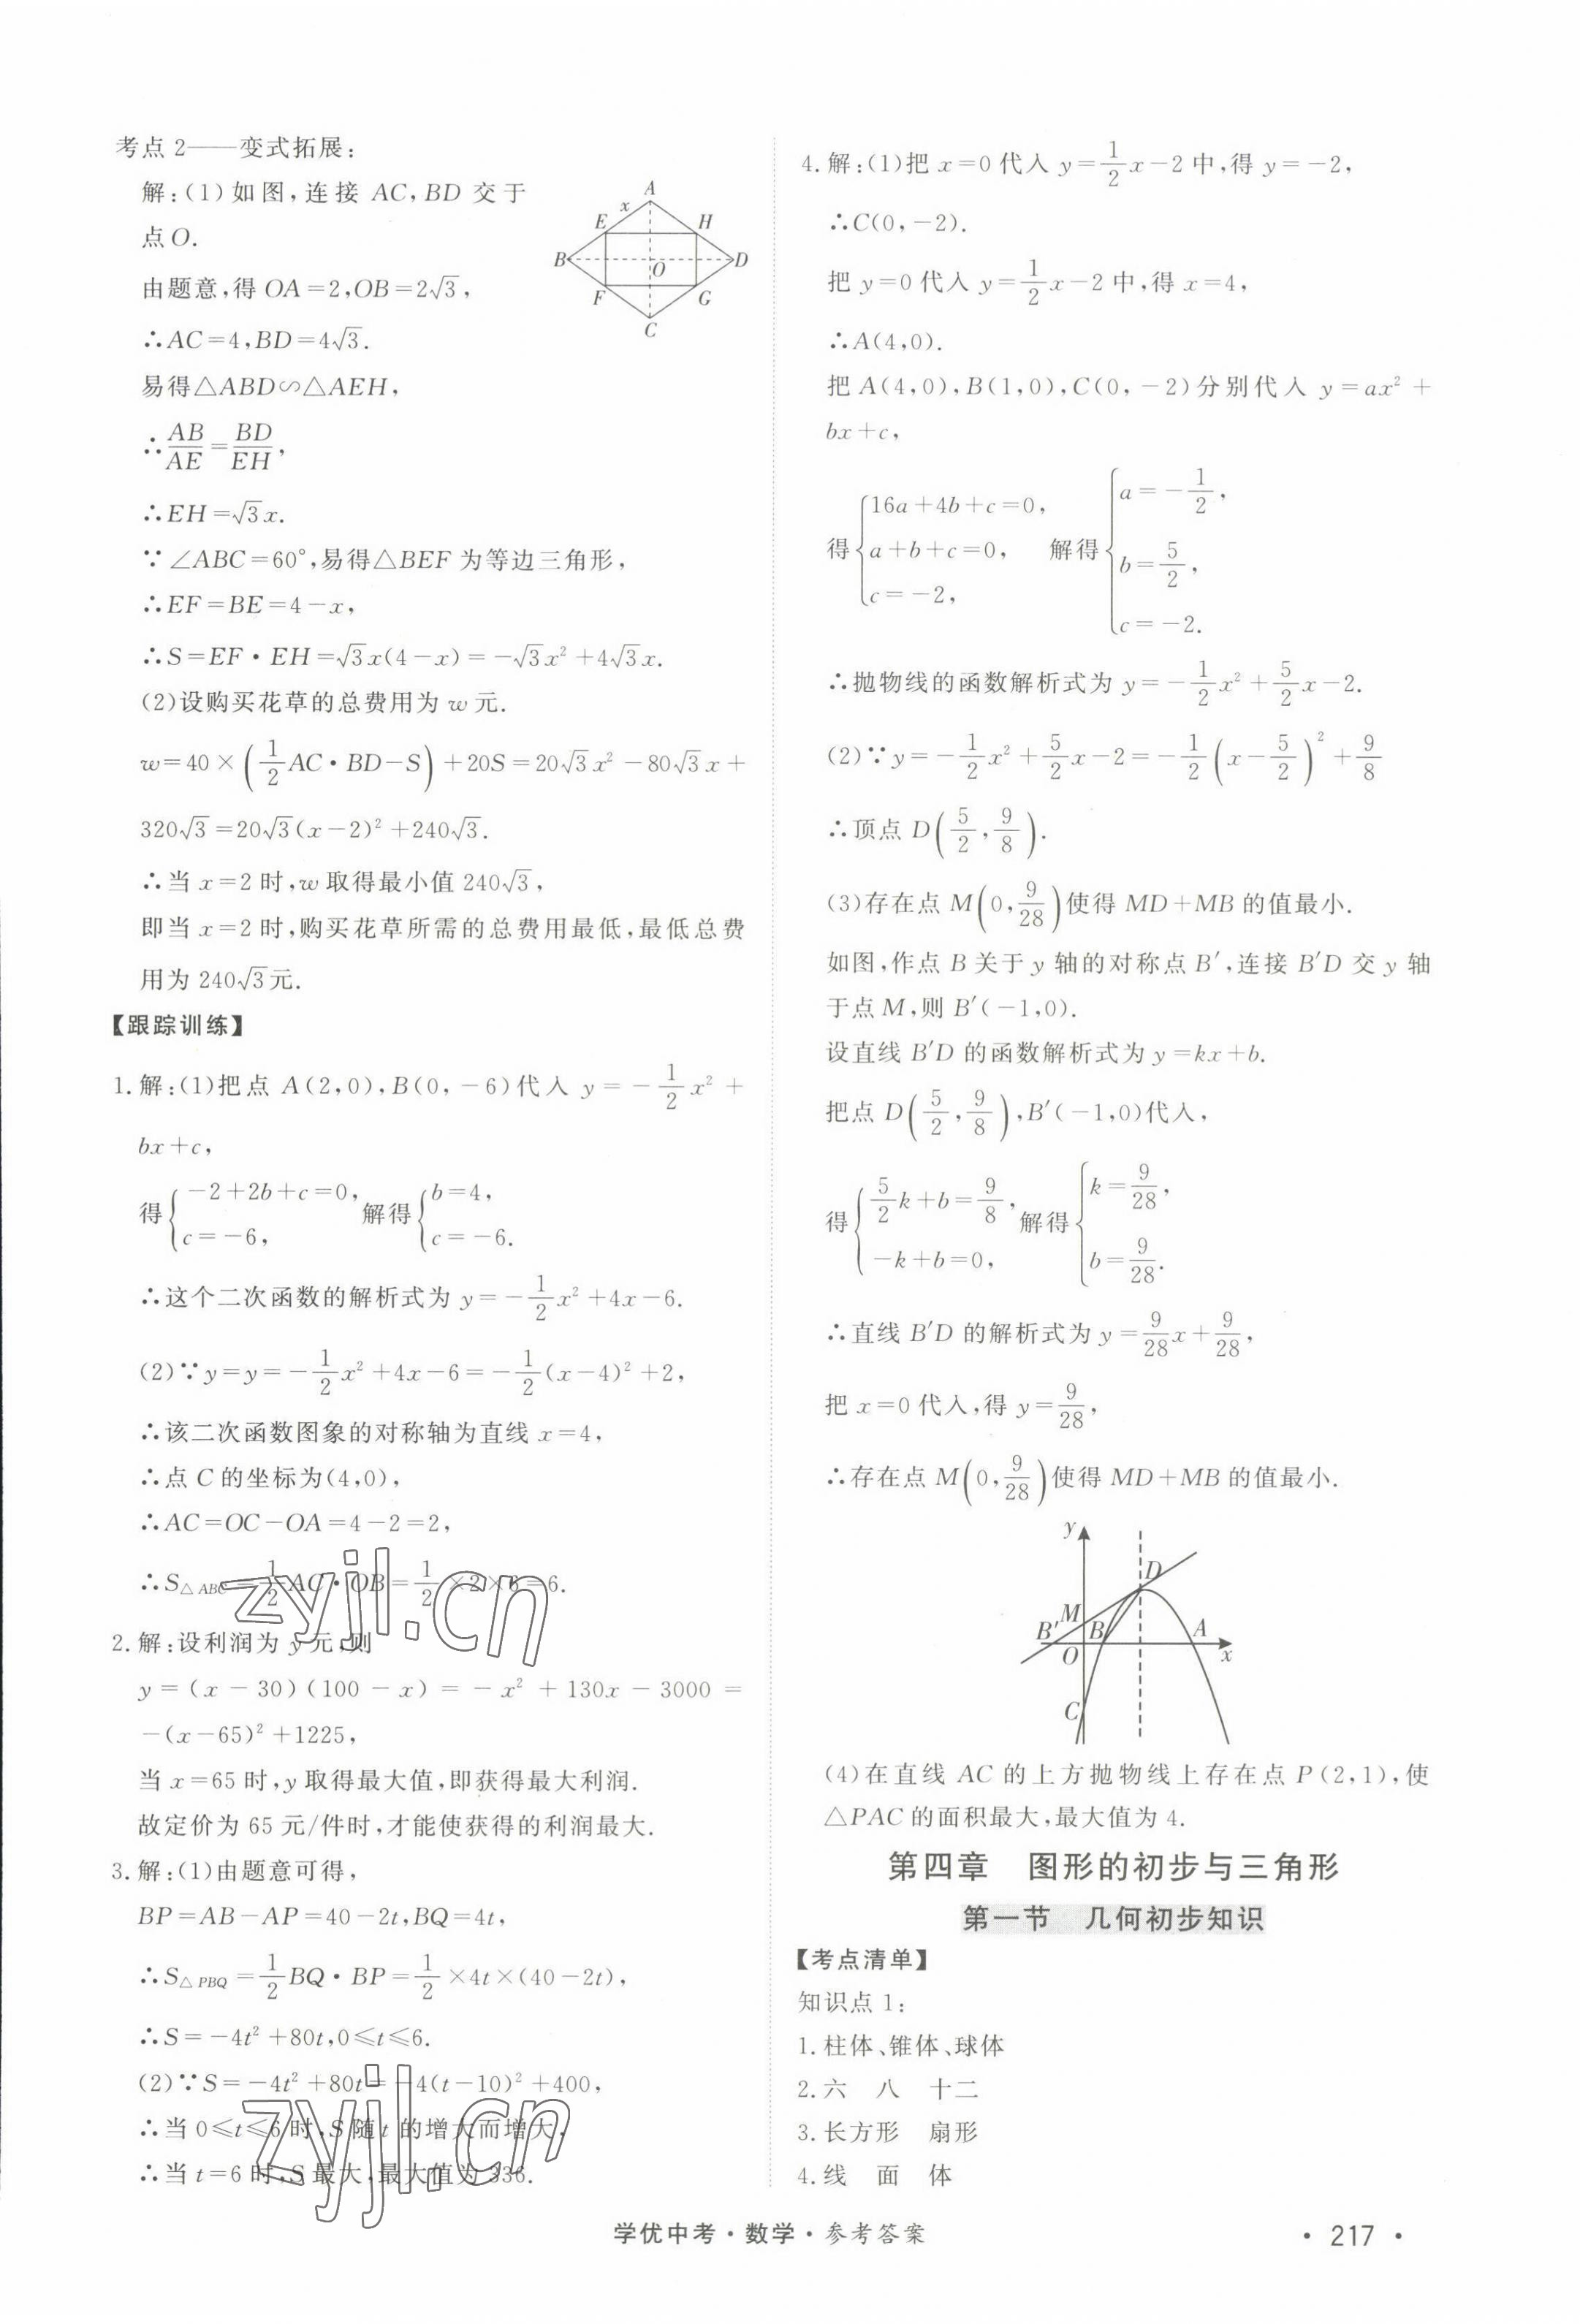 考点 2——变式拓展:
解:(1)如图,连接 AC,BD 交于
点O.
由题意,得 OA=2,OB=2√3,
∴AC=4,BD=4√3.
易得△ABD∽△AEH,
∴AB/AE=BD/EH,
∴EH=√3x.
∵∠ABC=60°,易得△BEF 为等边三角形,
∴EF=BE=4-x,
∴S=EF·EH=√3x(4-x)=-√3x²+4√3x.
(2)设购买花草的总费用为 w 元.
w=40×(1/2AC·BD-S)+20S=20√3x²-80√3x+
320√3=20√3(x-2)²+240√3.
∴当 x=2 时,w 取得最小值 240√3,
即当 x=2 时,购买花草所需的总费用最低,最低总费
用为 240√3元.
A
x
E
H
B
O
D
F
G
C
【跟踪训练】
1.解:(1)把点 A(2,0),B(0,-6)代入 y=-1/2x²+
bx+c,
得{-2+2b+c=0, c=-6, 解得{b=4, c=-6.
∴这个二次函数的解析式为 y=-1/2x²+4x-6.
(2)∵y=y=-1/2x²+4x-6=-1/2(x-4)²+2,
∴该二次函数图象的对称轴为直线 x=4,
∴点 C 的坐标为(4,0),
∴AC=OC-OA=4-2=2,
∴S△ABC=1/2AC·OB=1/2×2×6=6.
zyjl.cn
2.解:设利润为 y 元,则
y=(x-30)(100-x)=-x²+130x-3000=
-(x-65)²+1225,
当 x=65 时,y 取得最大值,即获得最大利润.
故定价为 65 元/件时,才能使获得的利润最大.
3.解:(1)由题意可得,
BP=AB-AP=40-2t,BQ=4t,
∴S△PBQ=1/2BQ·BP=1/2×4t×(40-2t),
∴S=-4t²+80t,0≤t≤6.
(2)∵S=-4t²+80t=-4(t-10)²+400,
∴当 0≤t≤6 时,S 随 t 的增大而增大,
∴当 t=6 时,S 最大,最大值为 336.
zyjl.cn
4.解:(1)把 x=0 代入 y=1/2x-2 中,得 y=-2,
∴C(0,-2).
把 y=0 代入 y=1/2x-2 中,得 x=4,
∴A(4,0).
把 A(4,0),B(1,0),C(0,-2)分别代入 y=ax²+
bx+c,
得{16a+4b+c=0, a+b+c=0, c=-2, 解得{a=-1/2, b=5/2, c=-2.
∴抛物线的函数解析式为 y=-1/2x²+5/2x-2.
(2)∵y=-1/2x²+5/2x-2=-1/2(x-5/2)²+9/8
∴顶点 D(5/2,9/8).
(3)存在点 M(0,9/28)使得 MD+MB 的值最小.
如图,作点 B 关于 y 轴的对称点 B′,连接 B′D 交 y 轴
于点 M,则 B′(-1,0).
设直线 B′D 的函数解析式为 y=kx+b.
把点 D(5/2,9/8),B′(-1,0)代入,
得{5/2k+b=9/8, -k+b=0, 解得{k=9/28, b=9/28.
∴直线 B′D 的解析式为 y=9/28x+9/28,
把 x=0 代入,得 y=9/28,
∴存在点 M(0,9/28)使得 MD+MB 的值最小.
y
D
M
B′
B
A
O
x
C
(4)在直线 AC 的上方抛物线上存在点 P(2,1),使
△PAC 的面积最大,最大值为 4.
第四章 图形的初步与三角形
第一节 几何初步知识
【考点清单】
知识点 1:
1.柱体、锥体、球体
2.六 八 十二
3.长方形 扇形
4.线 面 体
学优中考·数学·参考答案
· 217 ·